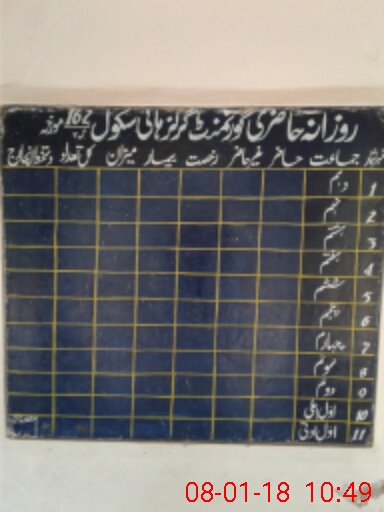 روزانہ حاضری گورنمنٹ گرلز ہائی سکول 162 مورخہ
نمبر شمار جماعت حاضر غیر حاضر رخصت بیمار میزان کل تعداد دستخط انچارج
1 دہم
2 نہم
3 ہشتم
4 ہفتم
5 ششم
6 پنجم
7 چہارم
8 سوئم
9 دوم
10 اول اعلیٰ
11 اول ادنیٰ
08-01-18 10:49